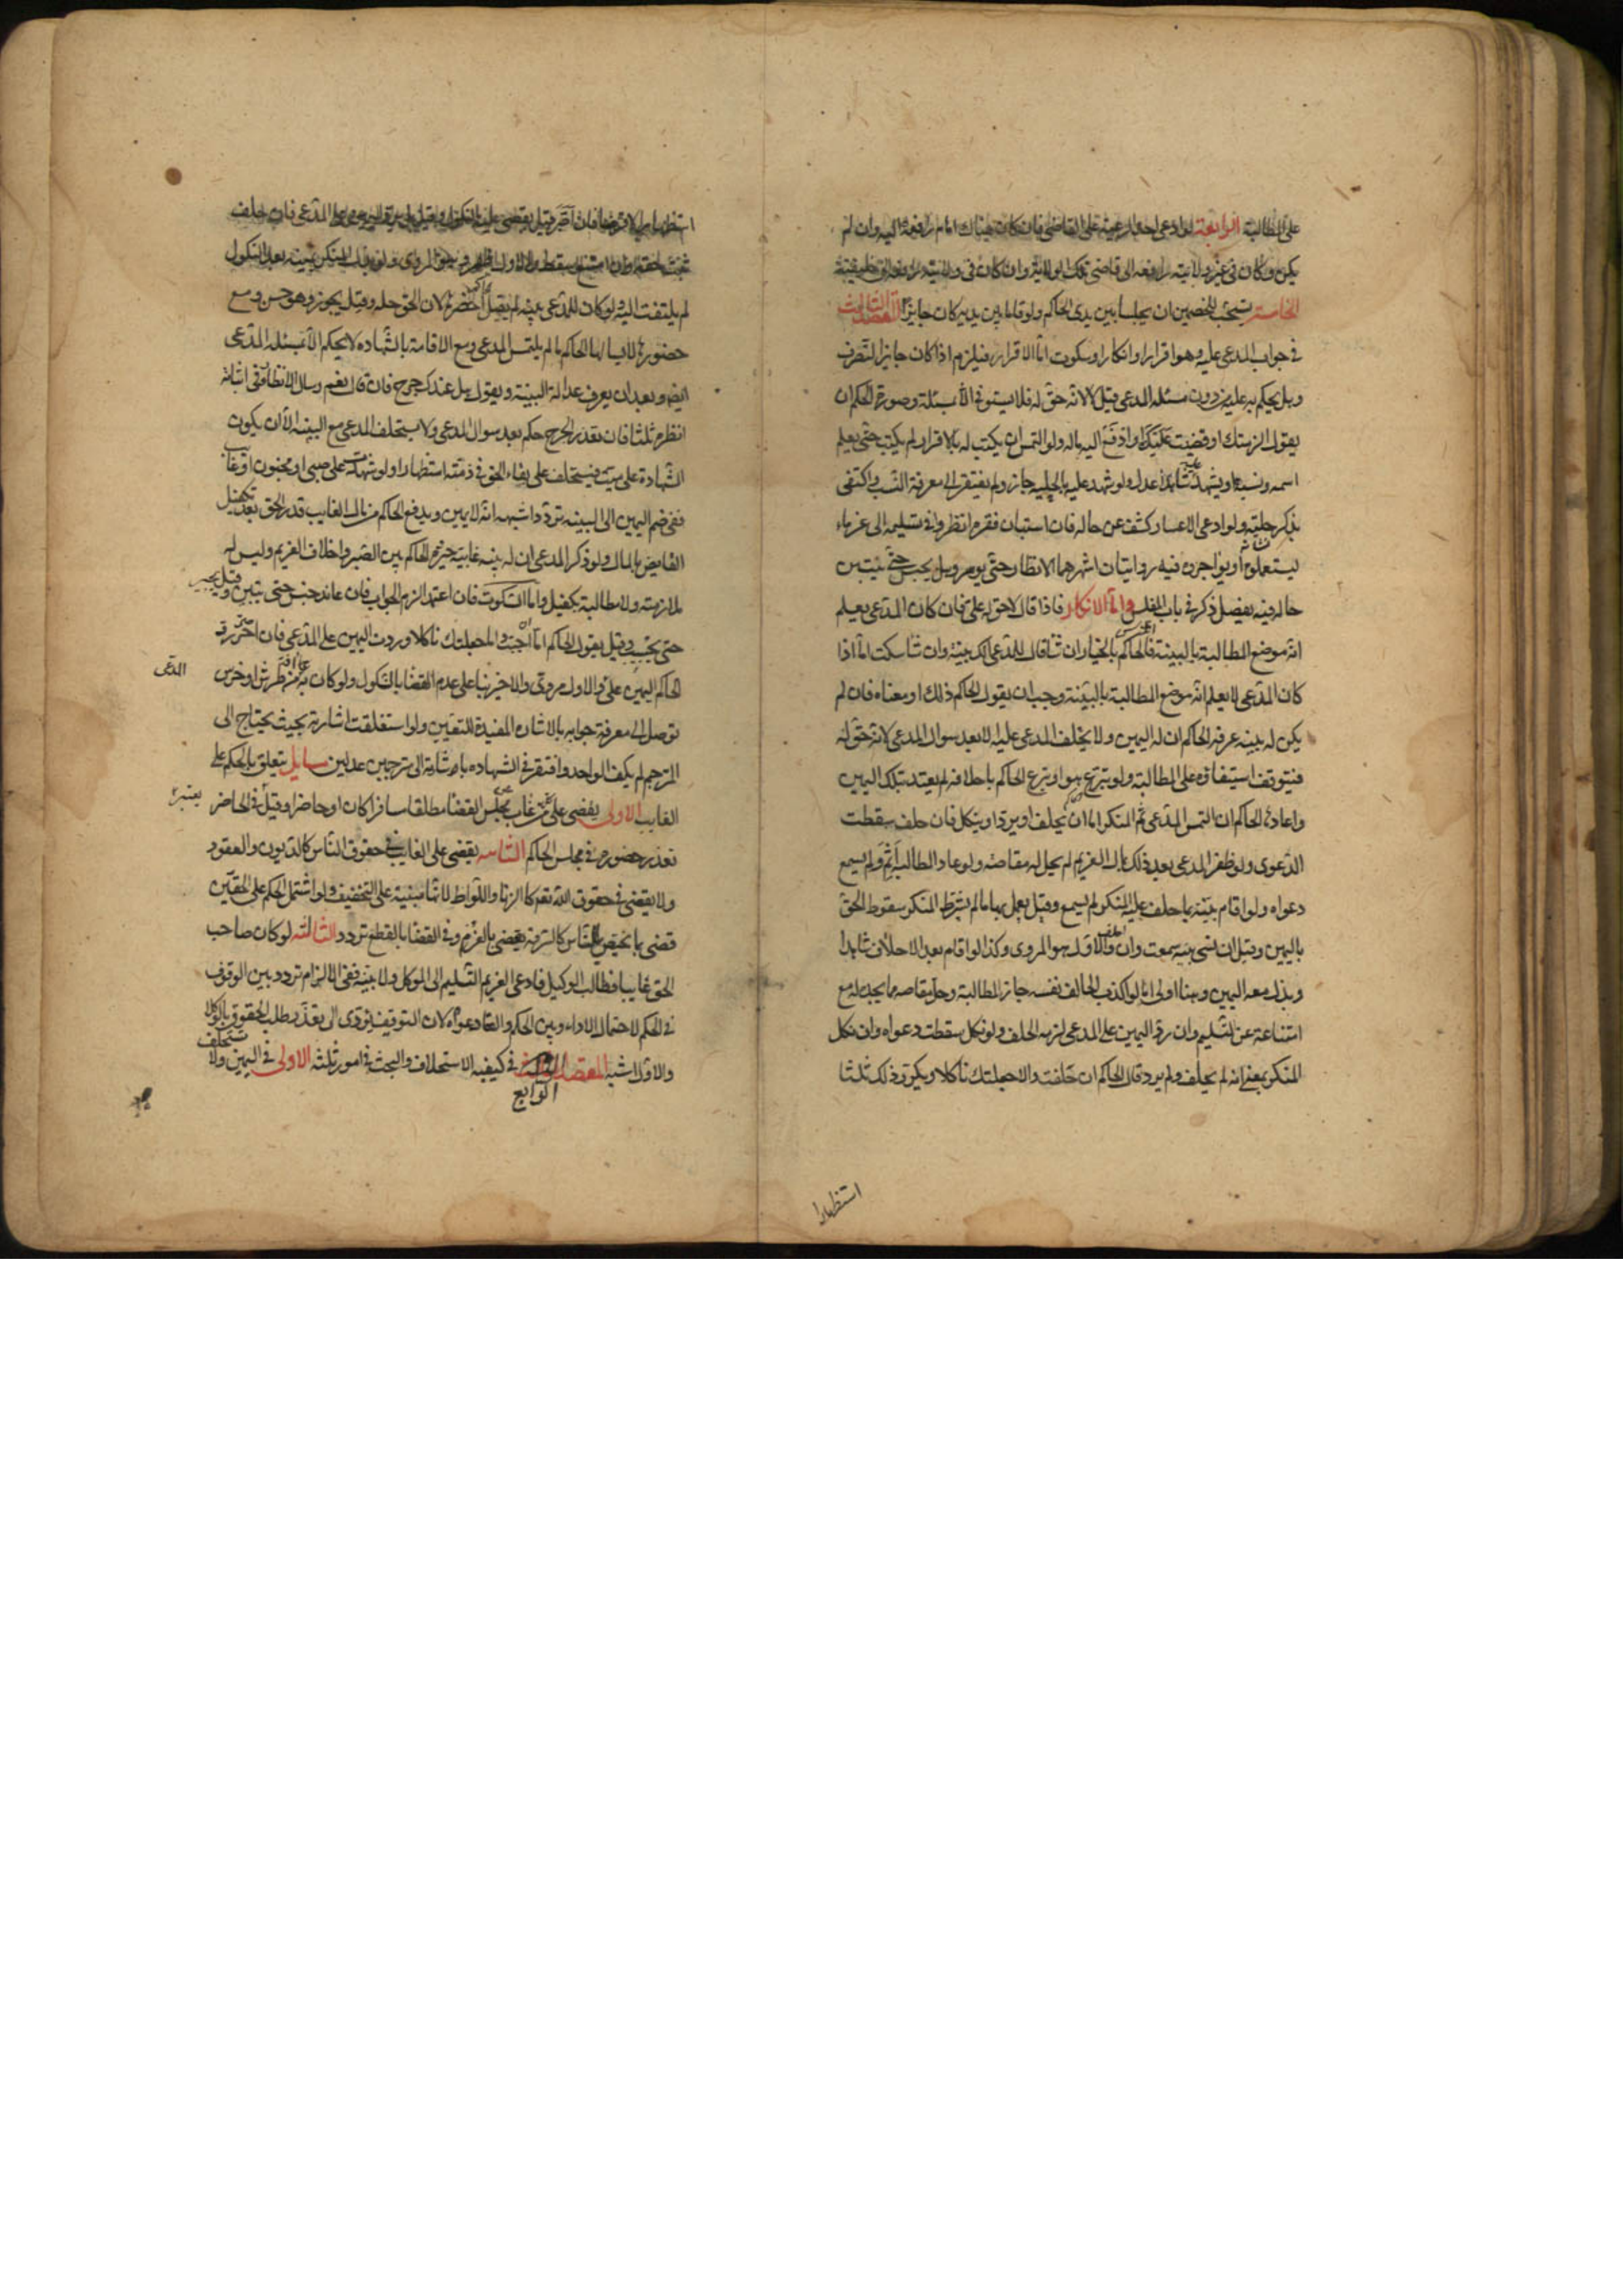 على المطالبة الرابعة لو ادعى احد الرعية على القاضى فان كان هناك امام رافعه اليه وان لم
يكن وكان فى غير ولايته رافعه الى قاضى تلك الولاية وان كان فى ولايته رافعه الى خليفته
الخامسة يستحب للخصمين ان يجلسا بين يدى الحاكم ولو قاما بين يديه كان جايزا المقصد الثالث
فى جواب المدعى عليه وهو اقرار او انكار او سكوت اما الاقرار فيلزم اذا كان جايز التصرف
وهل يحكم به عليه من دون مسئلة المدعى قيل لا لانه حق له فلا يستوفى الا بمسئلة وصورة الحكم ان
يقول الزمتك او قضيت عليك او ادفع اليه ماله ولو التمس ان يكتب له بالاقرار لم يكتب حتى يعلم
اسمه ونسبه او يشهد عليه شاهدا عدل ولو شهد عليه بالحلية جاز ولم يفتقر الى معرفة النسب واكتفى
بذكر حليته ولو ادعى الاعسار كشف عن حاله فان استبان فقره انظر وفى تسليمه الى غرمائه
ليستعملوه او يواجروه فيه روايتان اشهرهما الانظار حتى يوسر وهل يحبس حتى يتبين
حاله فيه تفصيل ذكر فى باب المفلس واما الانكار فاذا قال لا حق له على فان كان المدعى يعلم
انه موضع المطالبة بالبينة فالحاكم بالخيار ان شا قال للمدعى الك بينة وان شا سكت اما اذا
كان المدعى لا يعلم انه موضع المطالبة بالبينة وجب ان يقول الحاكم ذلك او معناه فان لم
يكن له بينه عرفه الحاكم ان له اليمين ولا يحلف المدعى عليه الا بعد سوال المدعى لانه حق له
فيتوقف استيفاؤه على المطالبة ولو تبرع هو او تبرع الحاكم باحلافه لم يعتد بتلك اليمين
واعادها الحاكم ان التمس المدعى ثم المنكر اما ان يحلف او يرد او ينكل فان حلف سقطت
الدعوى ولو ظفر المدعى بعد ذلك بمال الغريم لم يحل له مقاصته ولو عاود المطالبة اثم ولم يسمع
دعواه ولو اقام بينة بما حلف عليه المنكر لم يسمع وقيل يعمل بها ما لم يشترط المنكر سقوط الحق
باليمين وقيل ان نسى بينه سمعت وان والاول هو المروى وكذا لو اقام بعد الاحلاف شاهدا
وبذل معه اليمين وهنا اولى اما لو اكذب الحالف نفسه جاز المطالبة وحل مقاصه مما يجده له مع
امتناعه عن التسليم وان رد اليمين على المدعى لزمه الحلف ولو نكل سقطت دعواه وان نكل
المنكر بمعنى انه لم يحلف ولم يرد قال الحاكم ان حلفت والا جعلتك ناكلا ويكرر ذلك ثلثا
استظهارا
استظهارا لا فرضا فان اصر قيل يقضى عليه بالنكول وقيل بل يرد اليمين على المدعى فان حلف
ثبت حقه وان امتنع سقط والاول اظهر وهو المروى ولو بذل المنكر يمينه بعد النكول
لم يلتفت اليه ولو كان للمدعى بينه لم يقل الحاكم احضرها لان الحق له وقيل يجوز وهو حسن ومع
حضورها لا يسالها الحاكم ما لم يلتمس المدعى ومع الاقامة بالشهاده لا يحكم الا بمسئلة المدعى
ايضا وبعد ان يعرف عدالة البينة ويقول هل عندك جرح فان قال نعم وسال الانظار فى اثباته
انظره ثلثا فان تعذر الجرح حكم بعد سوال المدعى ولا يستحلف المدعى مع البينه الا ان يكون
الشهادة على ميت فيستحلف على بقاء الحق فى ذمته استظهارا ولو شهدت على صبى او مجنون او غايب
ففى ضم اليمين الى البينه تردد اشبهه انه لا يمين ويدفع الحاكم من مال الغايب قدر الحق بعد تكفيل
القابض بالمال ولو ذكر المدعى ان له بينه غايبة خيره الحاكم بين الصبر واحلاف الغريم وليس له
ملازمته ولا مطالبة بكفيل واما السكوت فان اعتمد الزم الجواب فان عاند حبس حتى يتبين وقيل يجبر
حتى يجيب وقيل يقول الحاكم اما اجبت والا جعلتك ناكلا ورددت اليمين على المدعى فان اصر رد
الحاكم اليمين على والاول مروى والاخير بنا على عدم القضا بالنكول ولو كان به افة من طرش او خرس
المدعى
توصل الى معرفة جوابه بالاشاره المفيدة للتعيين ولو استغلقت اشارته بحيث يحتاج الى
المترجم لم يكف الواحد وافتقر فى الشهاده باشارته الى مترجمين عدلين مسايل يتعلق بالحكم على
الغايب الاولى يقضى على من غاب عن مجلس القضا مطلقا مسافرا كان او حاضرا وقيل فى الحاضر يعتبر
تعذر حضوره فى مجلس الحاكم الثانيه يقضى على الغايب فى حقوق الناس كالديون والعقود
ولا يقضى فى حقوق الله تعالى كالزنا واللواط لانها مبنية على التخفيف ولو اشتمل الحكم على الحقين
قضى بما يختص الناس كالسرقة يقضى بالغرم وفى القضا بالقطع تردد الثالثه لو كان صاحب
الحق غايبا فطالب الوكيل فادعى الغريم التسليم الى الموكل ولا بينة ففى الالزام تردد بين الوقوف
فى الحكم لاحتمال الاداء وبين الحكم والغاء دعواه لان التوقف يؤدى الى تعذر طلب الحقوق بالوكلا
والاول اشبه المقصد الرابع فى كيفية الاستحلاف والبحث فى امور ثلثه الاولى فى اليمين ولا يستحلف